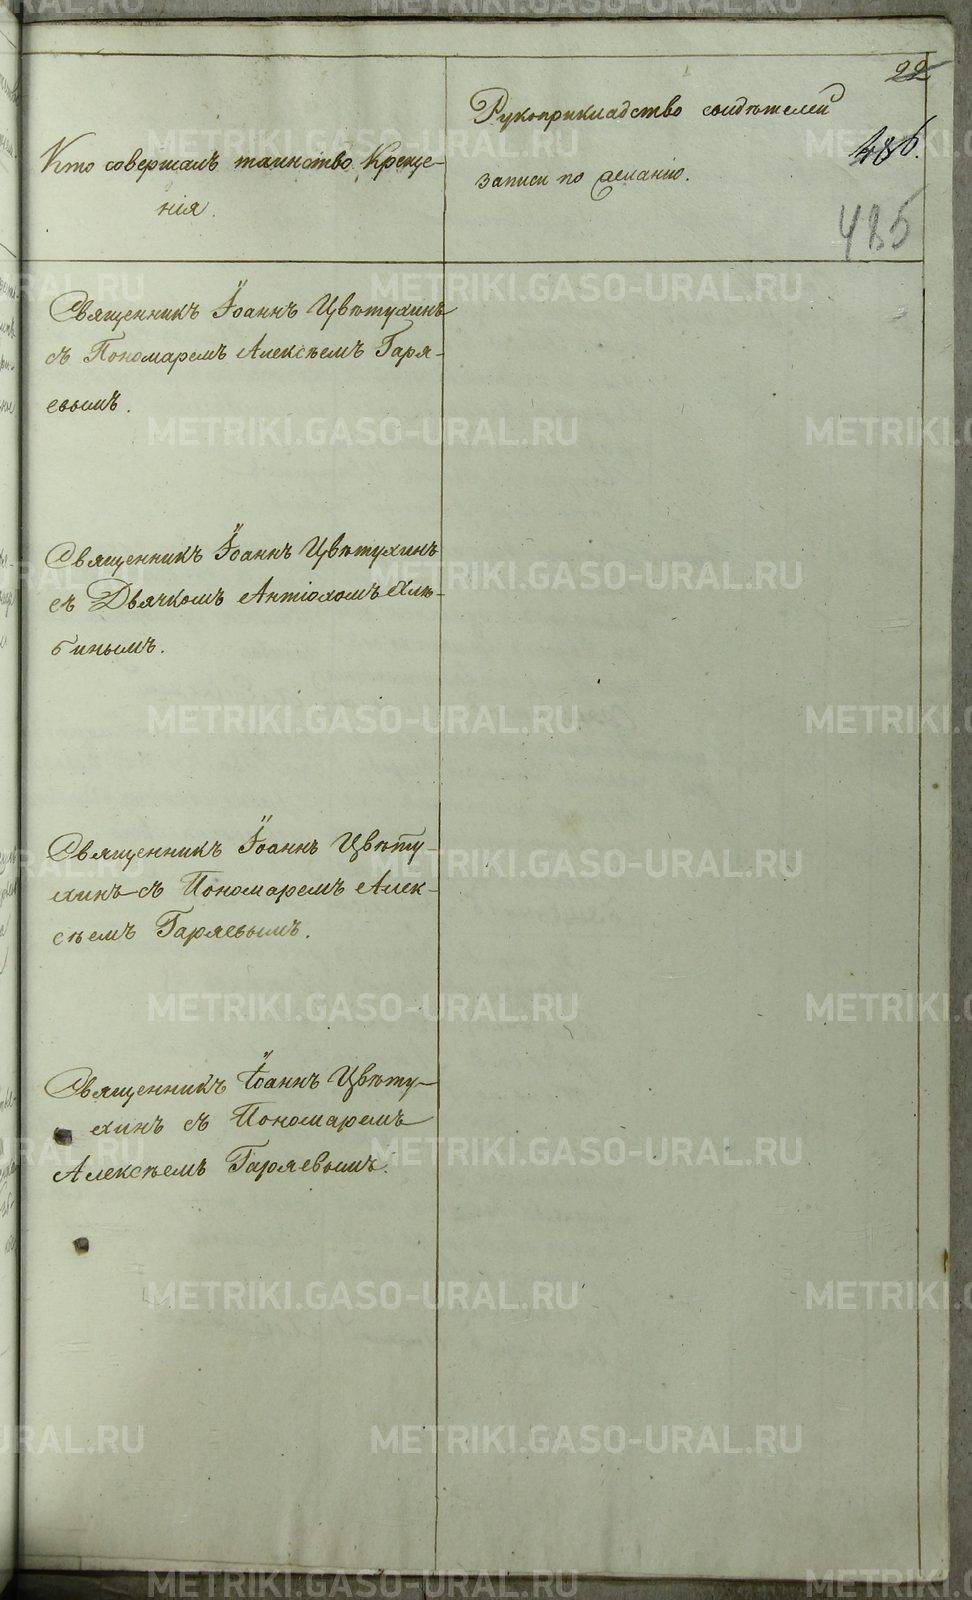 22
Кто совершалъ таинство Креще-
нія.
Рукоприкладство свидѣтелей
записи по желанію.
485
Священникъ Іоаннъ Цвѣтухинъ
съ Пономаремъ Алексѣемъ Гаря-
евымъ.
Священникъ Іоаннъ Цвѣтухинъ
съ Дьячкомъ Антіохомъ Хлю-
бинымъ.
Священникъ Іоаннъ Цвѣту-
хинъ съ Пономаремъ Алек-
сѣемъ Гаряевымъ.
Священникъ Іоаннъ Цвѣту-
хинъ съ Пономаремъ
Алексѣемъ Гаряевымъ.
METRIKI.GASO-URAL.RU